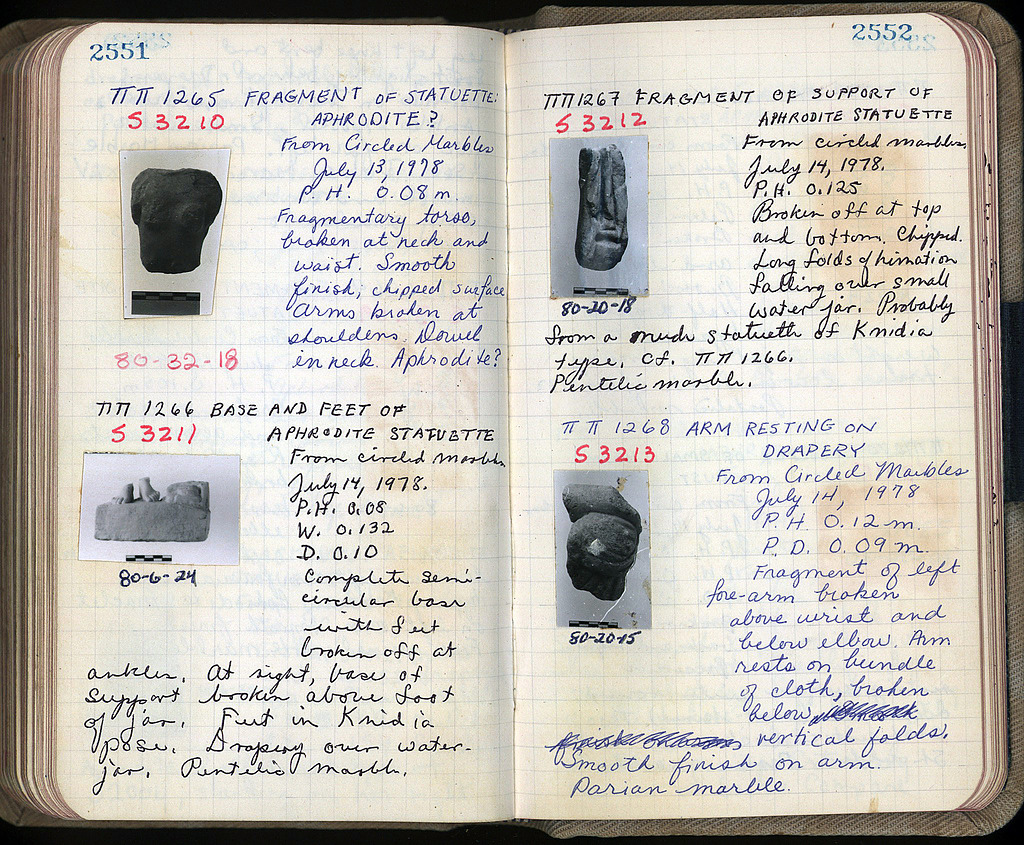 2551
ΠΠ 1265 FRAGMENT OF STATUETTE:
S 3210 APHRODITE?
From Circled Marbles
July 13, 1978
P.H. 0.08 m.
Fragmentary torso,
broken at neck and
waist. Smooth
finish; chipped surface
Arms broken at
shoulders. Dowel
in neck. Aphrodite?
80-32-18
ΠΠ 1266 BASE AND FEET OF
S 3211 APHRODITE STATUETTE
From circled marbles
July 14, 1978.
P.H. 0.08
W. 0.132
D. 0.10
80-6-24
Complete semi-
circular base
with feet
broken off at
ankles. At right, base of
support broken above foot
of jar. Feet in Knidia
pose. Drapery over water-
jar. Pentelic marble.
2552
ΠΠ1267 FRAGMENT OF SUPPORT OF
S 3212 APHRODITE STATUETTE
From circled marbles
July 14, 1978.
P.H. 0.125
Broken off at top
and bottom. Chipped.
Long folds of himation
falling over small
water jar. Probably
80-20-18
from a nude statuette of Knidia
type. Cf. ΠΠ 1266.
Pentelic marble.
ΠΠ 1268 ARM RESTING ON
S 3213 DRAPERY
From Circled Marbles
July 14, 1978
P.H. 0.12 m.
P.D. 0.09 m.
Fragment of left
fore-arm broken
above wrist and
below elbow. Arm
rests on bundle
of cloth, broken
below
vertical folds.
80-20-15
Smooth finish on arm.
Parian marble.